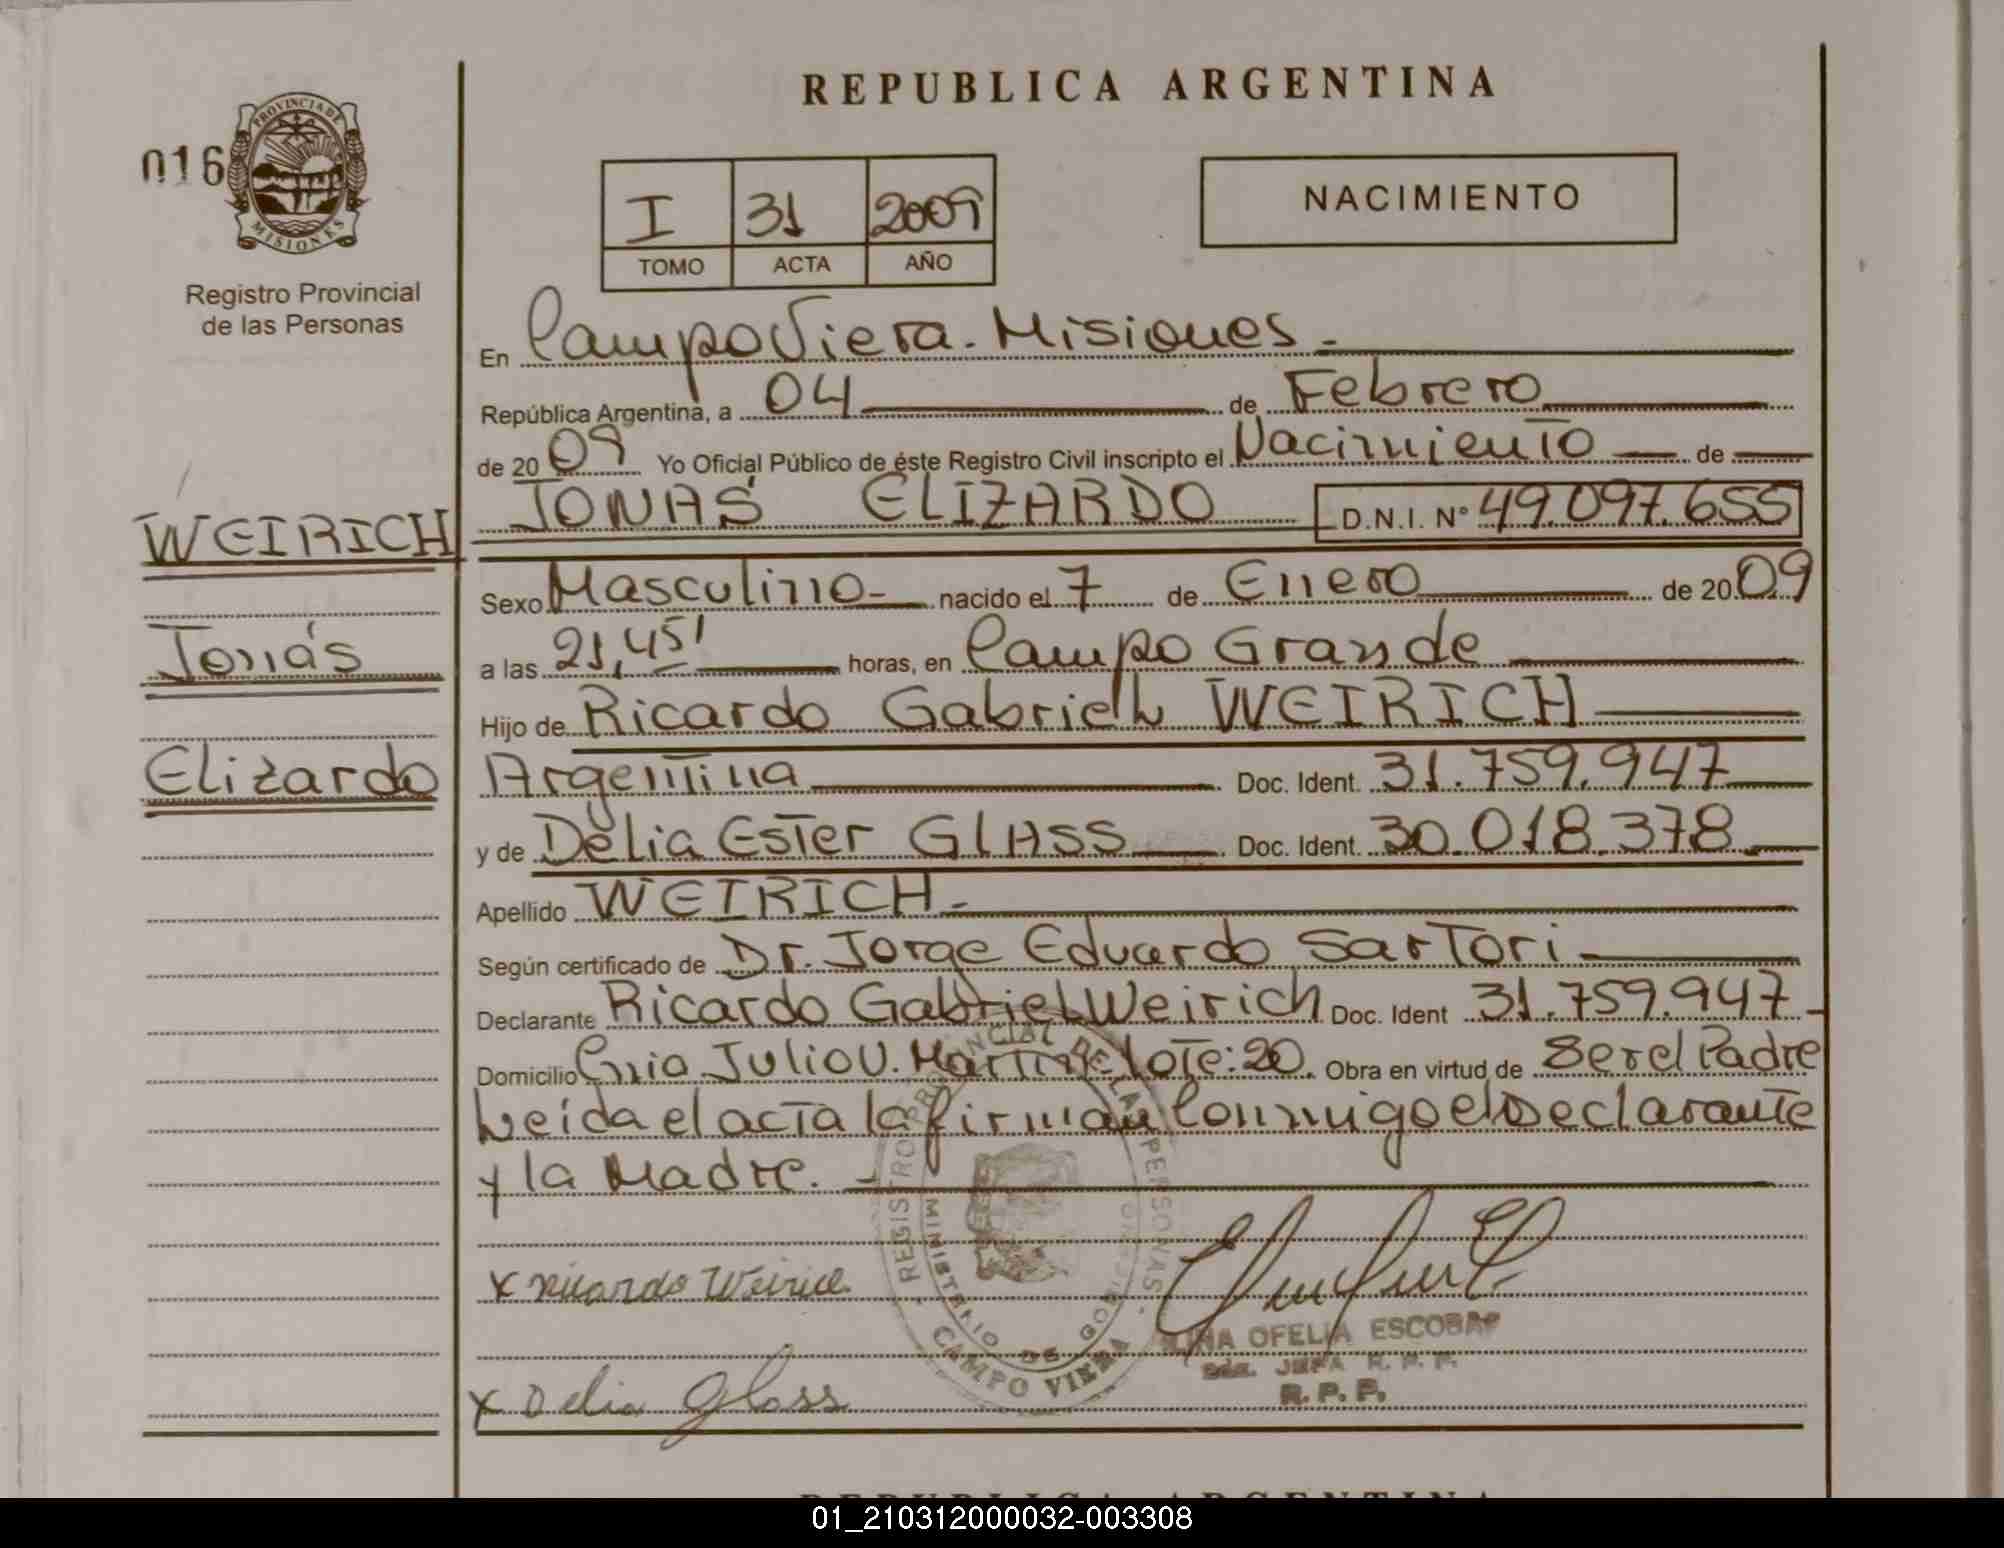 REPUBLICA ARGENTINA
016
PROVINCIA DE
MISIONES
Registro Provincial
de las Personas
I 31 2009
TOMO ACTA AÑO
NACIMIENTO
En Campo Viera - Misiones.-
República Argentina, a 04 de Febrero
de 2009 Yo Oficial Público de éste Registro Civil inscripto el Nacimiento de
WEIRICH
JONÁS ELIZARDO D.N.I. Nº 49.097.655
Sexo Masculino- nacido el 7 de Enero de 2009
Jonás
a las 21,45' horas, en Campo Grande
Hijo de Ricardo Gabriel WEIRICH
Elizardo
Argentina Doc. Ident. 31.759.947
y de Delia Ester GLASS Doc. Ident. 30.018.378.
Apellido WEIRICH.-
Según certificado de Dr. Jorge Eduardo Sartori
Declarante Ricardo Gabriel Weirich Doc. Ident 31.759.947-
Domicilio Julio U. Martin lote: 20. Obra en virtud de Ser el Padre
Leída el acta la firman Conmigo el Declarante
y la Madre. -
x Ricardo Weirich
x Delia Glass
REGISTRO PROVINCIAL DE LAS PERSONAS
MINISTERIO DE GOBIERNO
CAMPO VIERA
OFELIA ESCOBAR
JEFA R. P. P.
R. P. P.
REPUBLICA ARGENTINA
01_210312000032-003308